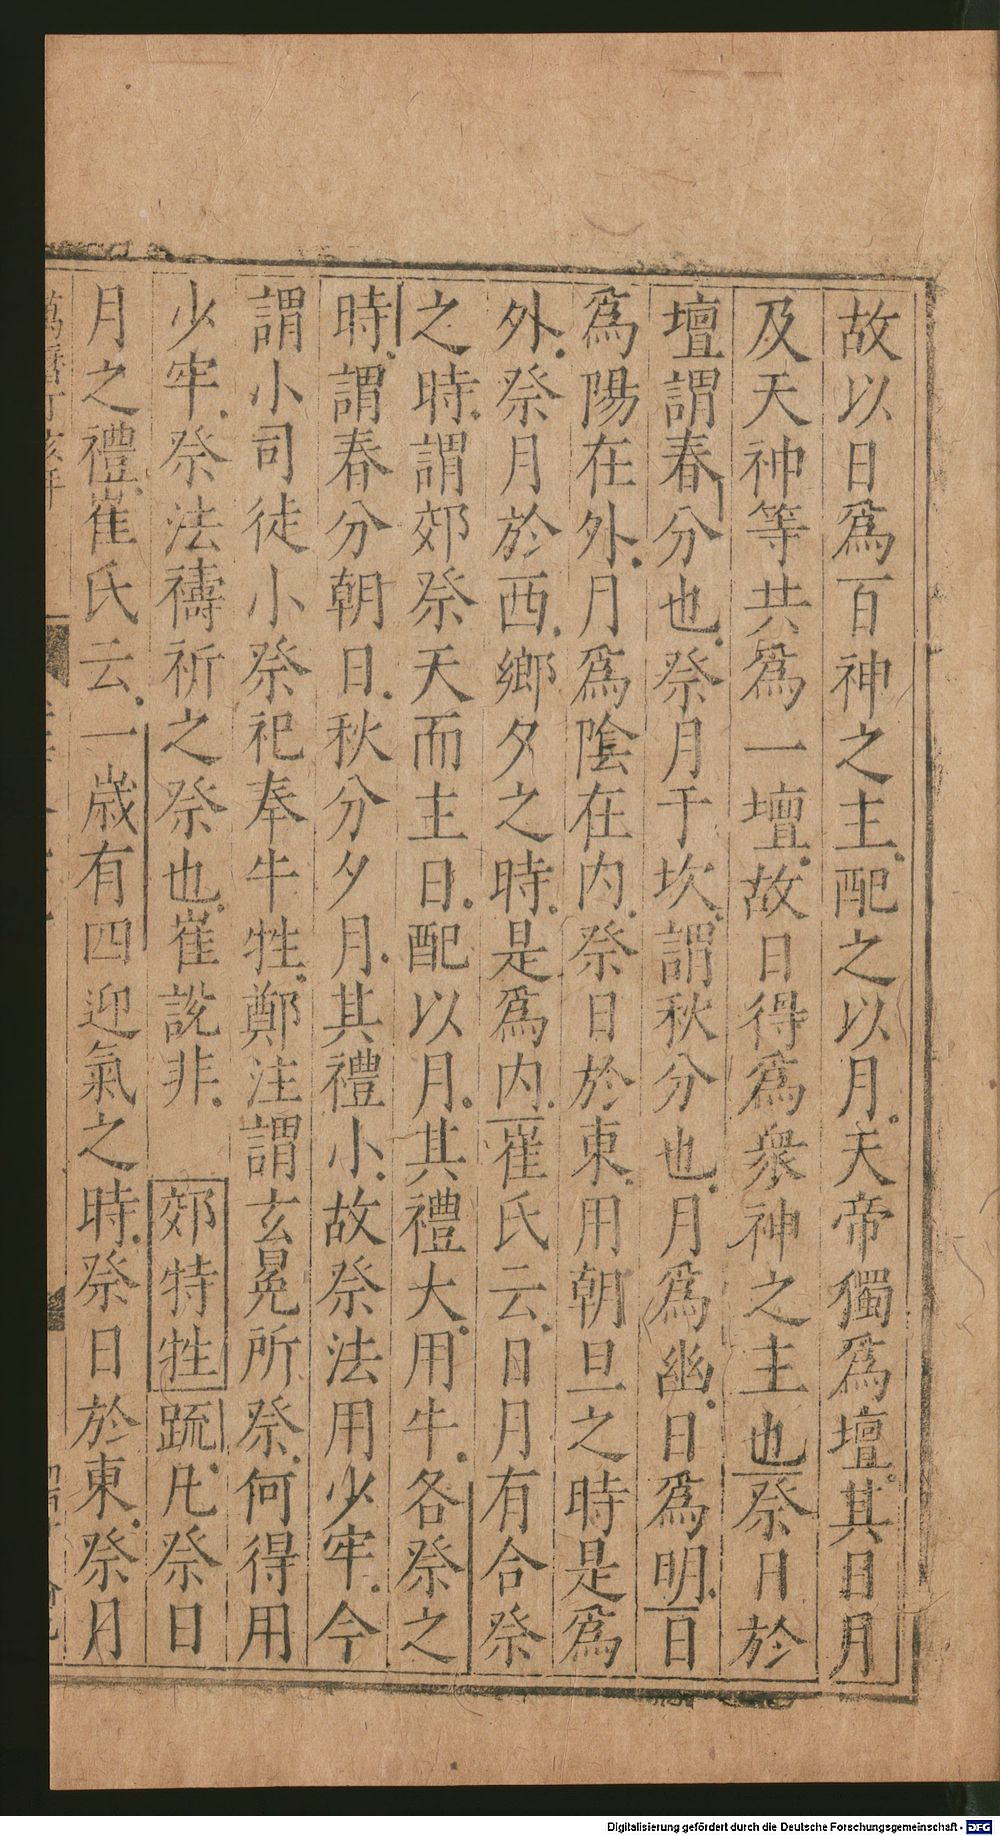 故以日爲百神之主配之以月天帝獨爲壇其日月
及天神等共爲一壇故日得爲衆神之主也祭日於
壇謂春分也祭月于坎謂秋分也月爲幽日爲明日
爲陽在外月爲陰在内祭日於東用朝旦之時是爲
外祭月於西鄉夕之時是爲内崔氏云日月有合祭
之時謂郊祭天而主日配以月其禮大用牛各祭之
時謂春分朝日秋分夕月其禮小故祭法用少牢今
謂小司徒小祭祀奉牛牲鄭注謂玄冕所祭何得用
少牢祭法禱祈之祭也崔說非 郊特牲䟽凡祭日
月之禮崔氏云一歲有四迎氣之時祭日於東祭月
萬曆丁亥年
Digitalisierung gefördert durch die Deutsche Forschungsgemeinschaft - DFG